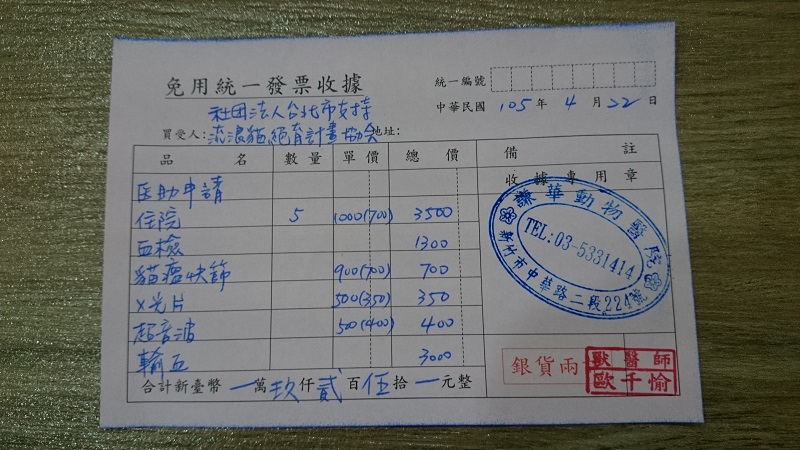 免用統一發票收據
統一編號
中華民國 105 年 4 月 22 日
社団法人台北市支持
買受人: 流浪貓絕育計畫協会 地址:
品 名 數量 單價 總 價 備 註
收據專用章
医助申請
住院 5 1000(700) 3500
血檢 1300
貓瘟快篩 900(700) 700
X光片 500(350) 350
超音波 500(400) 400
輸血 3000
合計新臺幣 一萬玖仟貳百伍拾一元整
謙華動物醫院
TEL:03-5331414
新竹市中華路二段224號
銀貨兩
獸醫師
歐千愉